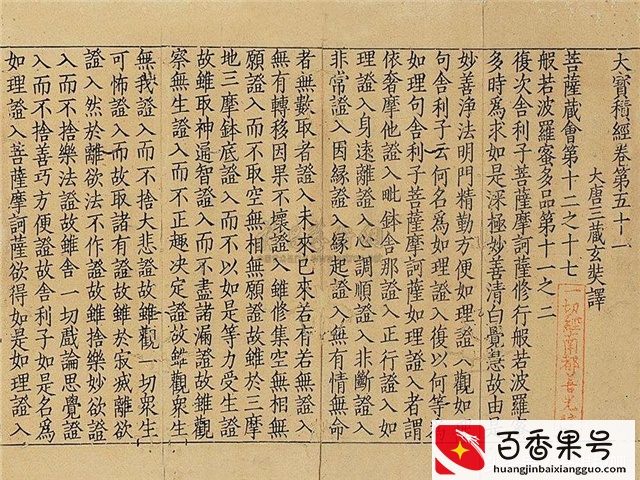 大寶積經卷第五十一
大唐三藏玄奘譯
菩薩藏會第十二之十七
般若波羅蜜多品第十一之二
復次舍利子菩薩摩訶薩修行般若波羅
多時為求如是深極妙善清白覺慧故由
妙善淨法明門精勤方便如理證入觀如
句舍利子云何名為如理證入復以何等
如理句舍利子菩薩摩訶薩如理證入者謂
依奢摩他證入毗鉢舍那證入正行證入如
理證入身遠離證入心調順證入非斷證入
非常證入因緣證入緣起證入無有情無命
者無數取者證入未來已來若有若無證入
無有轉移因果不壞證入雖修集空無相無
願證入而不取空無相無願證故雖於三摩
地三摩鉢底證入而不以如是等力受生證
故雖取神通智證入而不盡諸漏證故雖觀
察無生證入而不正趣決定證故雖觀眾生
無我證入而不捨大悲證故雖觀一切眾生
可怖證入而故取諸有證故雖於寂滅離欲
證入然於離欲法不作證故雖捨樂妙欲證
入而不捨樂法證故雖舍一切戲論思覺證
入而不捨善巧方便證故舍利子如是名為
如理證入菩薩摩訶薩欲得如是如理證入
一切經南都善光
百香果号
huangjinbaixiangguo.com